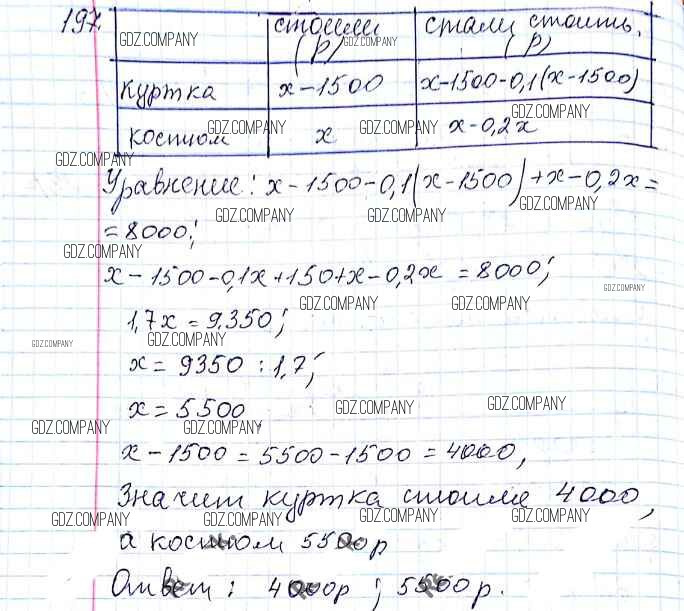 197.
GDZ.COMPANY стоили (р) GDZ.COMPANY стали стоить (р)
куртка x-1500 x-1500-0,1(x-1500)
GDZ.COMPANY
костюм GDZ.COMPANY x GDZ.COMPANY x-0,2x
GDZ.COMPANY
Уравнение: x-1500-0,1(x-1500)+x-0,2x=
GDZ.COMPANY GDZ.COMPANY GDZ.COMPANY
=8000;
GDZ.COMPANY
x-1500-0,1x+150+x-0,2x=8000;
GDZ.COMPANY
GDZ.COMPANY GDZ.COMPANY
1,7x=9.350;
GDZ.COMPANY GDZ.COMPANY
x=9350:1,7;
x=5500
GDZ.COMPANY GDZ.COMPANY
GDZ.COMPANY GDZ.COMPANY
x-1500=5500-1500=4000,
Значит куртка стоила 4000,
GDZ.COMPANY GDZ.COMPANY GDZ.COMPANY GDZ.COMPANY
а костюм 5500р
Ответ: 4000р; 5500р.